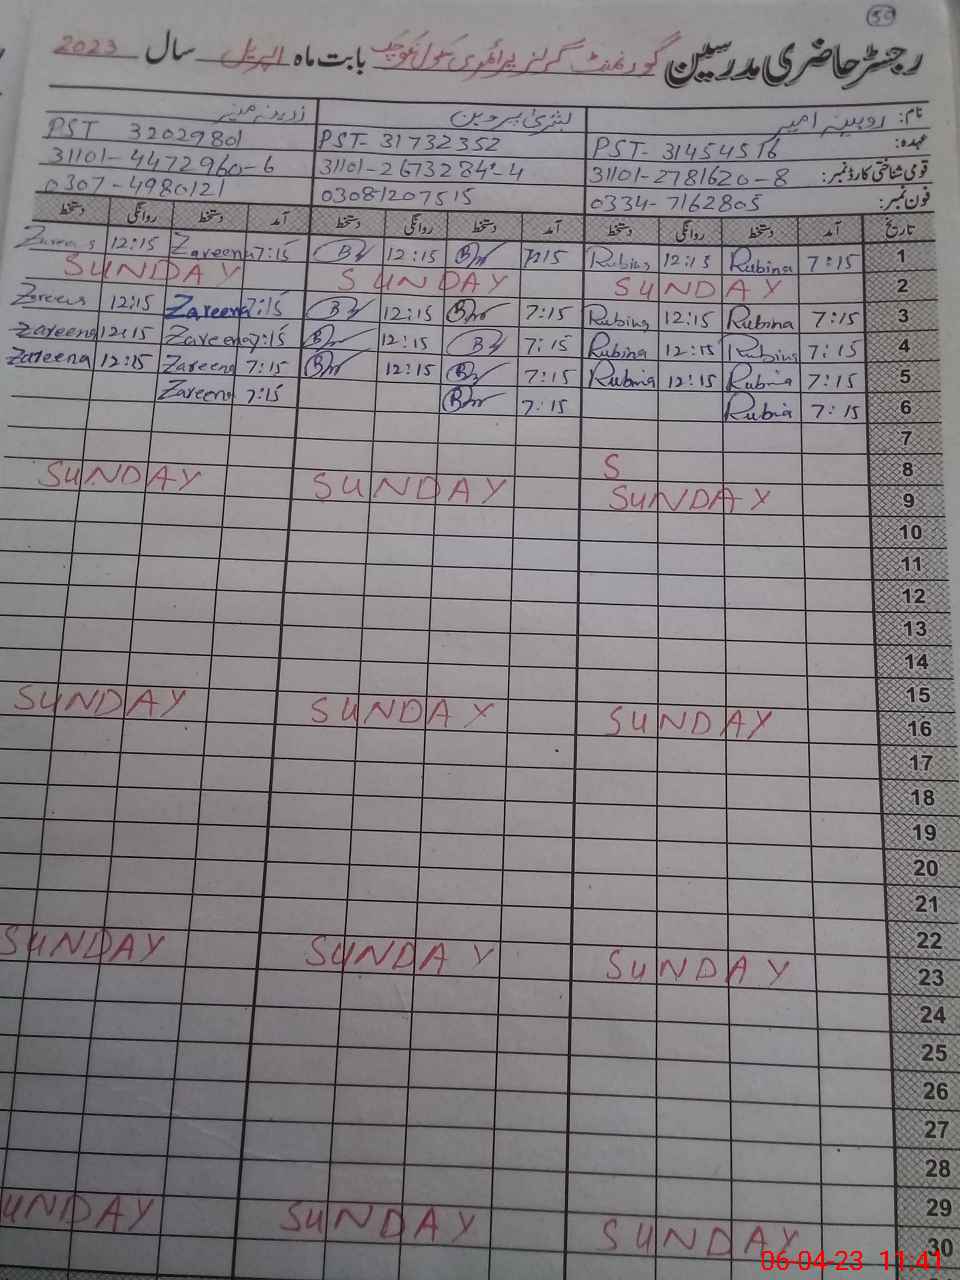 59
رجسٹر حاضری مدرسین گورنمنٹ گرلز پرائمری سکول بابت ماہ اپریل سال 2023
نام: روبینہ امیر بشریٰ پروین زرینہ منیر
عہدہ: PST- 31454516 PST- 31732352 PST 32029801
قومی شناختی کارڈ نمبر: 31101-2781620-8 31101-2673284-4 31101-4472960-6
فون نمبر: 0334-7162805 03081207515 0307-4980121
تاریخ آمد دستخط روانگی دستخط آمد دستخط روانگی دستخط آمد دستخط روانگی دستخط
1 7:15 Rubina 12:15 Rubina 7:15 12:15 7:15 Zareena 12:15
2 SUNDAY SUNDAY SUNDAY
3 7:15 Rubina 12:15 Rubina 7:15 12:15 7:15 Zareena 12:15
4 7:15 Rubina 12:15 Rubina 7:15 12:15 7:15 Zareena 12:15 Zareena
5 7:15 Rubina 12:15 Rubina 7:15 12:15 7:15 Zareena 12:15 Zareena
6 7:15 Rubina 7:15 7:15 Zareena
7
8 S
9 SUNDAY SUNDAY SUNDAY
10
11
12
13
14
15
16 SUNDAY SUNDAY SUNDAY
17
18
19
20
21
22
23 SUNDAY SUNDAY SUNDAY
24
25
26
27
28
29
30 SUNDAY SUNDAY UNDAY
06-04-23 11:41